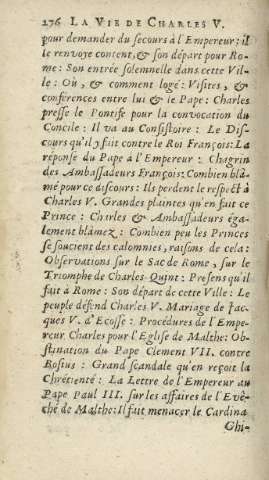 276 LA VIE DE CHARLES V.
pour demander du secours à l'Empereur; il
le renvoye content, & son départ pour Ro-
me: Son entrée solemnelle dans cette Vil-
le: Où, & comment logé: Visites, &
conférences entre lui & le Pape: Charles
presse le Pontife pour la convocation du
Concile: Il va au Consistoire: Le Dis-
cours qu'il y fait contre le Roi François: La
réponse du Pape à l'Empereur: Chagrin
des Ambassadeurs François: Combien blâ-
mé pour ce discours: Ils perdent le respect à
Charles V. Grandes plaintes qu'en fait ce
Prince: Charles & Ambassadeurs éga-
lement blâmez: Combien peu les Princes
se soucient des calomnies, raisons de cela:
Observations sur le Sac de Rome, sur le
Triomphe de Charles-Quint: Presens qu'il
fait à Rome: Son départ de cette Ville: Le
peuple défend Charles V. Mariage de Jac-
ques V. d'Ecosse: Procédures de l'Empe-
reur Charles pour l'Eglise de Malthe: Ob-
stination du Pape Clement VII. contre
Bosius: Grand scandale qu'en reçoit la
Chrétienté: La Lettre de l'Empereur au
Pape Paul III. sur les affaires de l'Evê-
ché de Malthe: Il fait menacer le Cardina
Ghi-